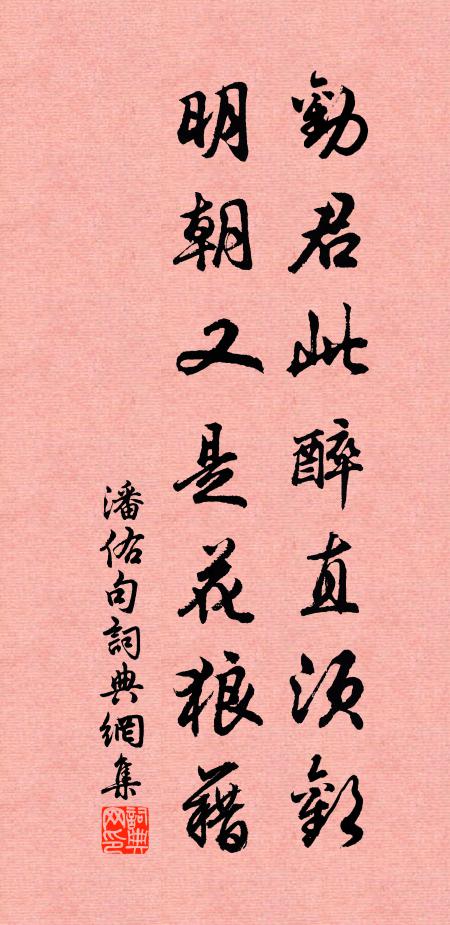 勸君此醉直須歡
明朝又是花狼藉
潘佑句詞典網集
詞典網印